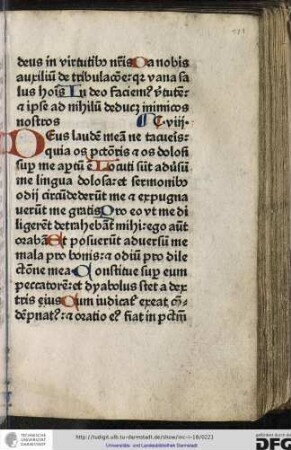 deus in virtutibꝰ nr̄is Da nobis
auxiliū de tribulacōe: qr vana sa
lus hoīs In deo faciemꝰ v̓tutē:
⁊ ipse ad nihilū deducꝫ inimicos
nostros C viij.
Deus laudē meā ne tacueris:
quia os pctōris ⁊ os dolosi
suꝑ me aꝑtū ē Locuti sūt adūsū
me lingua dolosa: et sermonibꝰ
odij circūdederūt me ⁊ expugna
uerūt me gratis Pro eo vt me di
ligerēt detrahebāt mihi: ego aūt
orabā Et posuerūt aduersū me
mala pro bonis: ⁊ odiū pro dile
ctōne mea Constitue suꝑ eum
peccatorem: et dyabolus stet a dex
tris eius Cum iudicat exeat
⁊ oratio eꝰ fiat in pctm̄
TECHNISCHE
UNIVERSITÄT
DARMSTADT
http://tudigit.ulb.tu-darmstadt.de/show/inc-ii-18/0221
Universitäts- und Landesbibliothek Darmstadt
gefördert durch die
DFG